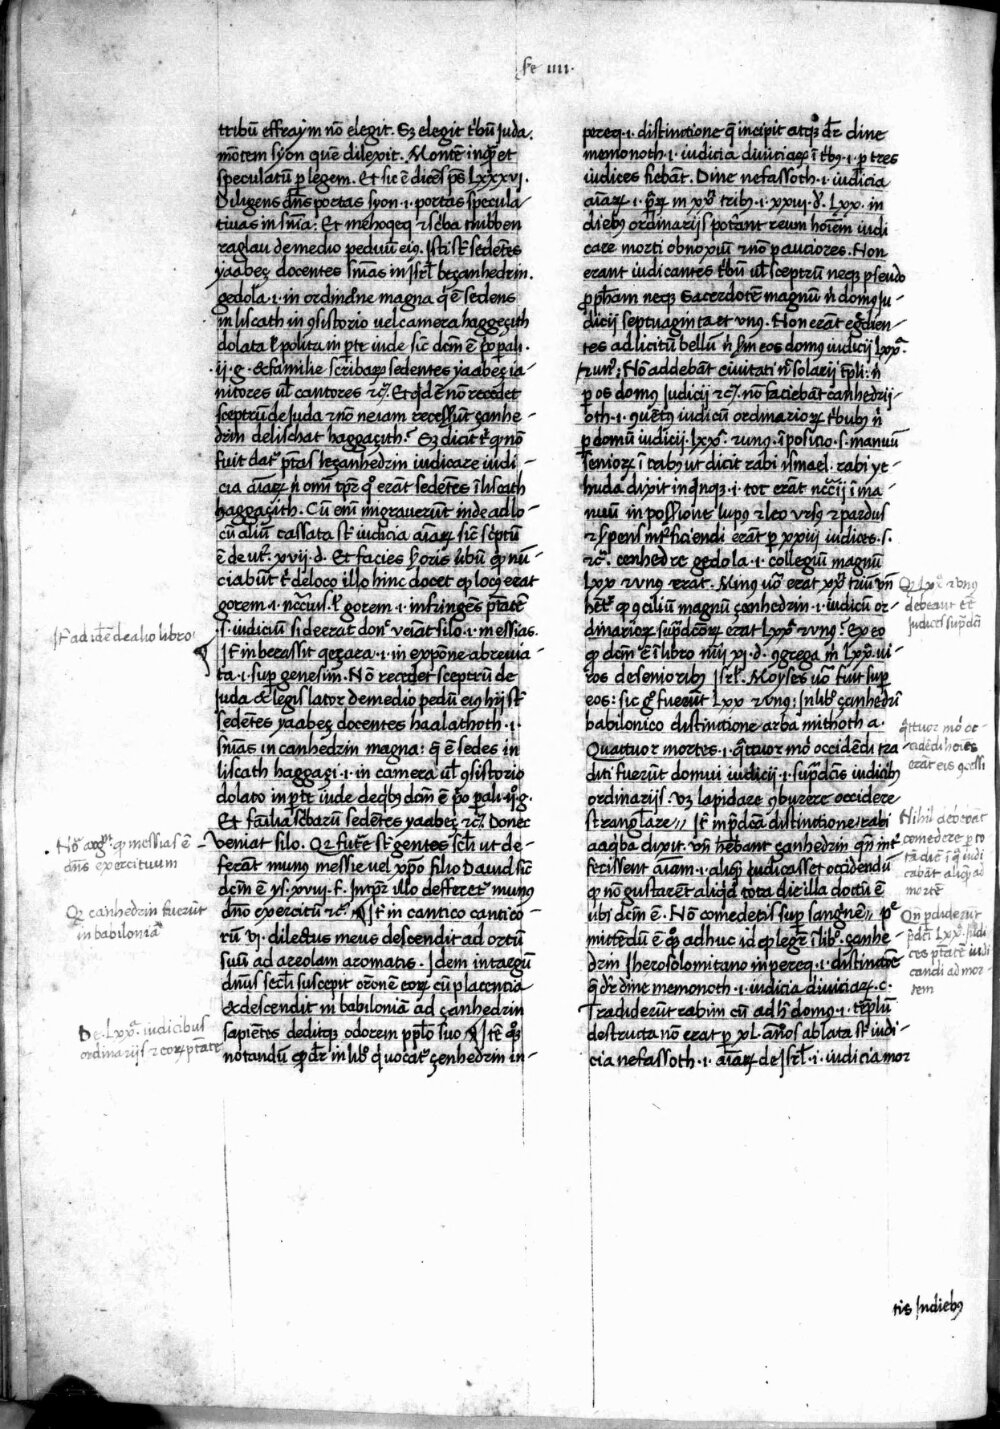 fo IIII.
tribū effraym nō elegit. Sz elegit tbū juda.
mōtem syon quē dilexit. Montē inqt et
speculatū p legem. Et sic ē dicēs ps LXXXVI.
Diligens dn̄s portas syon .i. portas specula-
tiuas in sn̄ia: Et mehoqeq
raglau de medio peduū eiꝰ. Isti st sedētes
yaabeç docentes sn̄ias in Jsrl beçanhedrin.
gedola .i. in ordine magna q ē sedens
in liscath in ↄsistorio vel camera haggeçith
dolata l polita in pte iude sic dcm ē pº pali.
.ii. g. & familie scribaꝝ sedentes yaabeç ia-
nitores ul cantores &c. Et qd ē nō recedet
sceptrū de Juda & nō recessit çanhe-
drin de lischat haggaçith. Sz dicit q nō
fuit datꝰ ptās leçanhedrin iudicare iudi-
cia aīaꝝ n̄ omi tpr qº erāt sedētes ī liscath
haggaçith. Cū eni migrauerūt inde ad lo-
cū aliū cassata st iudicia aīaꝝ sic scptū
ē deut. xvii. d. Et facies
ciabūt t de loco illo hinc docet qp locꝰ erat
gorem .i. l gorem .i. infringēs ptātem
s. iudiciū si deerat donº veīat silo .i. messias.
Jt in berassit qeçara .i. in expōne abreuia-
ta .i. sup genesim. Nō recedet sceptrū de
juda & legis lator de medio pedū eiꝰ hij st
sedētes yaabeç docentes haalathoth .i.
sn̄ias in canhedrin magna: q ē sedes in
liscath haggaçi .i. in camera ul ↄsistorio
dolato in pte iude de qbꝫ dcm ē pº pali. ijº g.
Et familia scbarū sedētes yaabeç &c. Donec
veniat silo. Qz futē st gentes scli ut de-
ferāt munꝰ messie vel xpō filio Dauid sic
dcm ē ys. xviij. f. In tpr illo defferetꝰ munꝰ
dn̄o exercitū &c. Jt in cantico cantico-
rū vi. dilectus meus descendit ad ortū
suū ad areolam aromatis. Idem intaegū
dn̄us secli suscepit oronē eoꝝ cū placencia
& descendit in babiloniā ad çanhedrin
sapientes deditqꝫ odorem pplo suo Jt
notandū qp dr in libº q vocatꝰ çenhedrin in-
pereq .i. distinctione q incipit atqꝫ dr dine
memonoth .i. iudicia diuiciaꝝ ī tbꝫ .i. p tres
iudices fiebāt. Dine nefassoth .i. iudicia
aīaꝝ .i. in xxº tribꝫ .i. xxiii. d. LXX. in
diebꝫ ordinarijs potāt reum hoīem iudi
care morti obnoxiū & nō pauciores. Non
erant iudicantes tbūm ul sceptrū neqꝫ pseudo
pphām neqꝫ Sacerdotem magnū n̄ domꝰ ju-
dicij septuaginta et vnꝰ. Non erāt egdien-
tes ad licitū bellū n̄ eos domꝰ iudicij LXXª
& unꝰ; Nō addebāt ciuitati n̄ solarij tpli: n̄
p os domꝰ Judicij &c. nō faciebāt canhedrij-
oth .i. iudiciū ordinarioꝝ tbubꝫ n̄
p domū iudicij. LXXª & unꝰ. ī posicio .s. manuū
senioꝝ ī trabꝫ ut dicit rabi ismael. rabi ye-
huda dixit inqinqꝫ .i. tot erāt ī ma-
nuū in possione lupus & leo vrsꝰ & pardus
& spens interficiendi erāt p xxiii iudices .s.
&c. cenhedre gedola .i. collegiū magnū
LXX & unꝰ erat. Minꝰ uº erat xxº triū vn̄
qp ↄciliū magnū çonhedrin .i. iudiciū or-
dinarioꝝ erat LXXª & unꝰ? Ex eo
qp dcm ē ī libro nūi vi. d. ↄgrega m LXXª ui-
ros de senioribꝫ Jsrl. Moyses uº fuit sup
eos: sic gº fuerūt LXX & unꝰ: In libº çanhedri
babilonico distinctione arba mithoth a.
Quatuor mortes .i. qttuor mō occidēdi tra-
diti fuerūt domui iudicij .i. iudicibꝫ
ordinarijs. Vz lapidare ↄburere occidere
stranglare // Jt in pdcta distinctione rabi
aaqba dixit. vn̄ hebant çanhedrin qn̄ int
fecissent aīam .i. aliqp judicasset occidendū
qp nō gustarēt aliqd tota die illa doctū ē
ubi dcm ē. Nō comedetis sup sangnē //
mittendū ē qº adhuc id qp legr ī libº çanhe-
drin Jherosolomitano in pereq .i. distinctōe
q dr dine memonoth .i. iudicia diuiciaꝝ. c.
Tradiderūt rabini cū ad h domꝰ .i. tēplū
destructa nō erat p XL annos ablata st iudi-
cia nefassoth .i. aīaꝝ de Jsrl .i. iudicia mor
Jt ad idē de alio libro
Nō qp messias ē
dn̄s exercituum
Qz canhedrin fuerūt
in babilonia
De LXXª iudicibus
ordinarijs & eoꝝ ptāte
Qz LXXª & unꝰ
debeant eē
judices supdci
qttuor mō oc-
cidēdi hoīes
erāt eis ↄcessi
Nihil debebāt
comedere p to
tā diē ī q iudi
cabāt aliqp ad
mortē
Qn̄ pdiderut
pdci LXXª iudi
ces ptātē iudi
candi ad mor-
tem
tis Jndiebꝫ